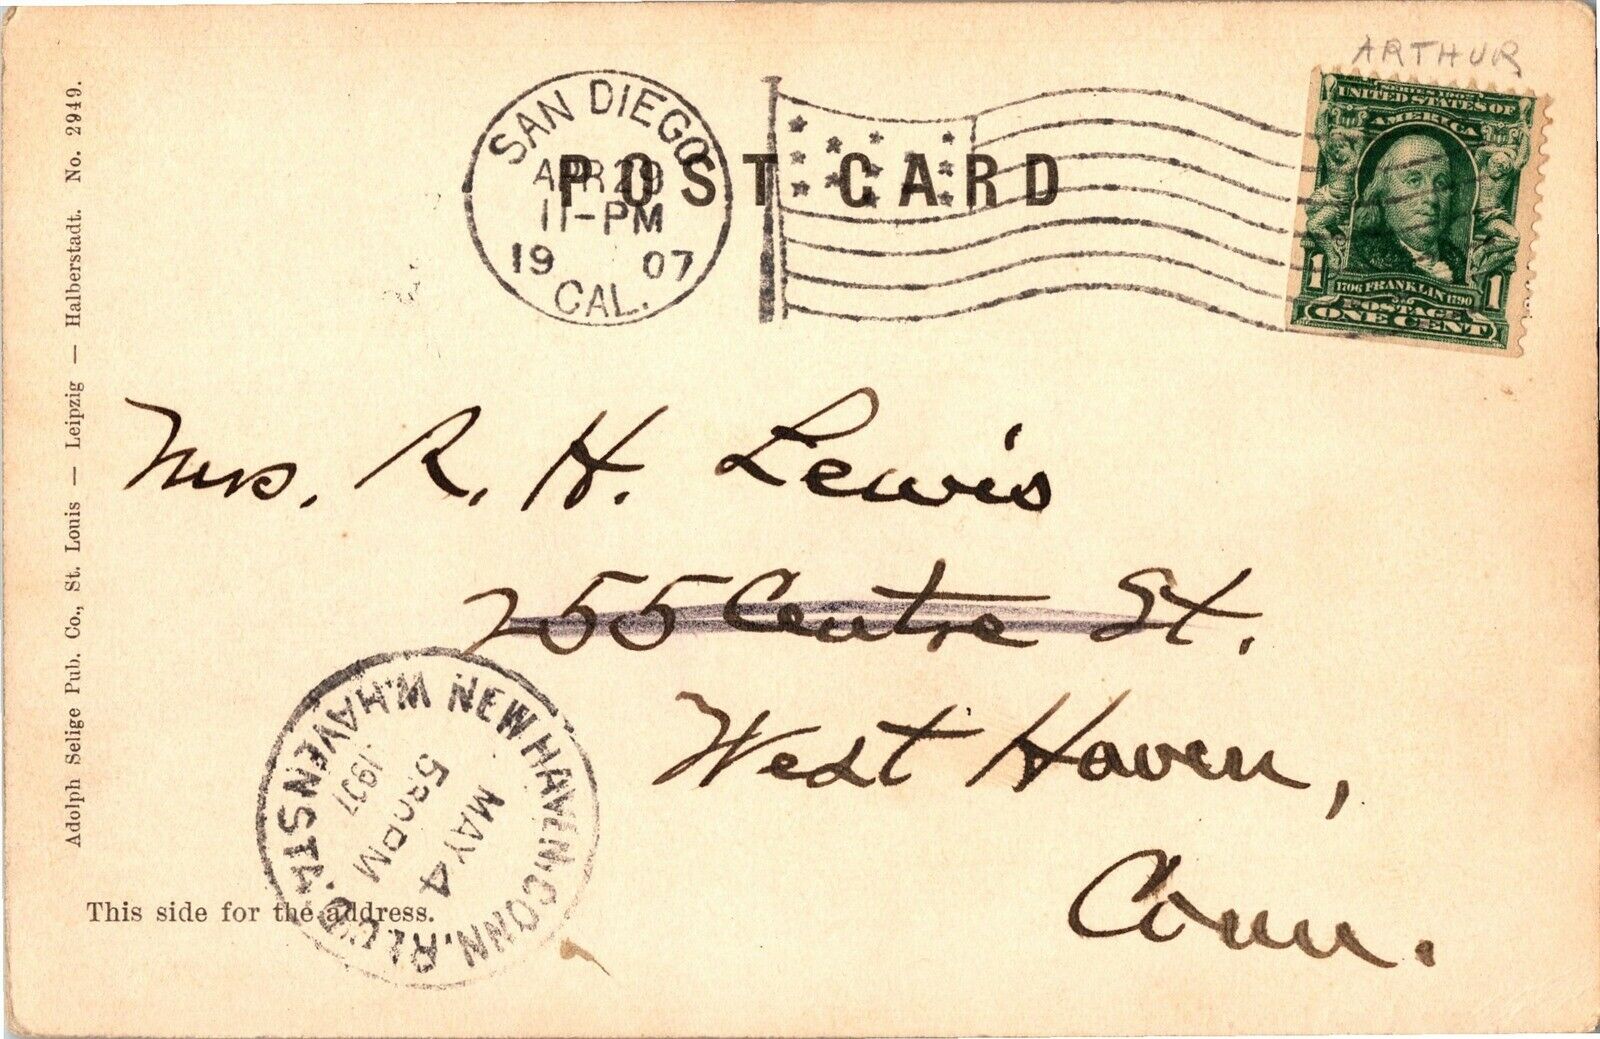 ARTHUR
SAN DIEGO
APR 29
11-PM
1907
CAL.
POST CARD
UNITED STATES OF
AMERICA
1 1706 FRANKLIN 1790 1
POSTAGE
ONE CENT
Adolph Selige Pub. Co., St. Louis — Leipzig — Halberstadt. No. 2949.
Mrs. R. H. Lewis
255 Centre St.
West Haven,
Conn.
NEW HAVEN, CONN. REC'D
W. HAVEN STA.
MAY 4
530 PM
1907
This side for the address.